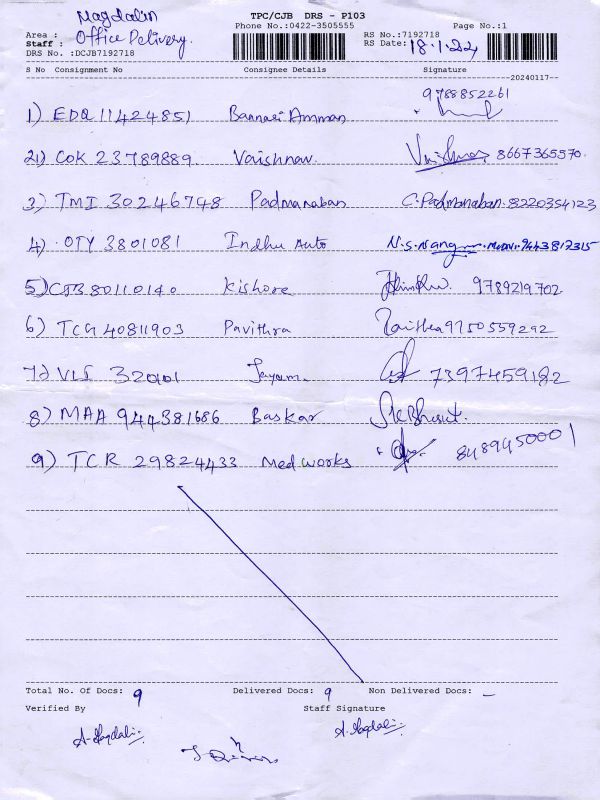 Magdalin
TPC/CJB DRS - P103
Area : Office Delivery.
Phone No.:0422-3505555
Page No.:1
Staff :
RS No.:7192718
RS Date: 18.1.24
DRS No. :DCJB7192718
S No Consignment No Consignee Details Signature
20240117
9788852261
1) EDQ 11424851 Bannari Amman
2) COK 23789889. Vaishnav. 8667365570.
3) TMI 30246748 Padmanaban C. Padmanaban. 8220354123
4) OTY 3801081 Indhu Auto 7443817315
5) CJB 80110140 Kishore 9789219702
6) TCG 40811903 Pavithra 9750559292
7) VLS Jayam 7397459182
8) MAA 944381686 Baskar
9) TCR 29824433 Medworks 8489450001
Total No. Of Docs: 9 Delivered Docs: 9 Non Delivered Docs: -
Verified By Staff Signature
A. Magdali A. Magdali